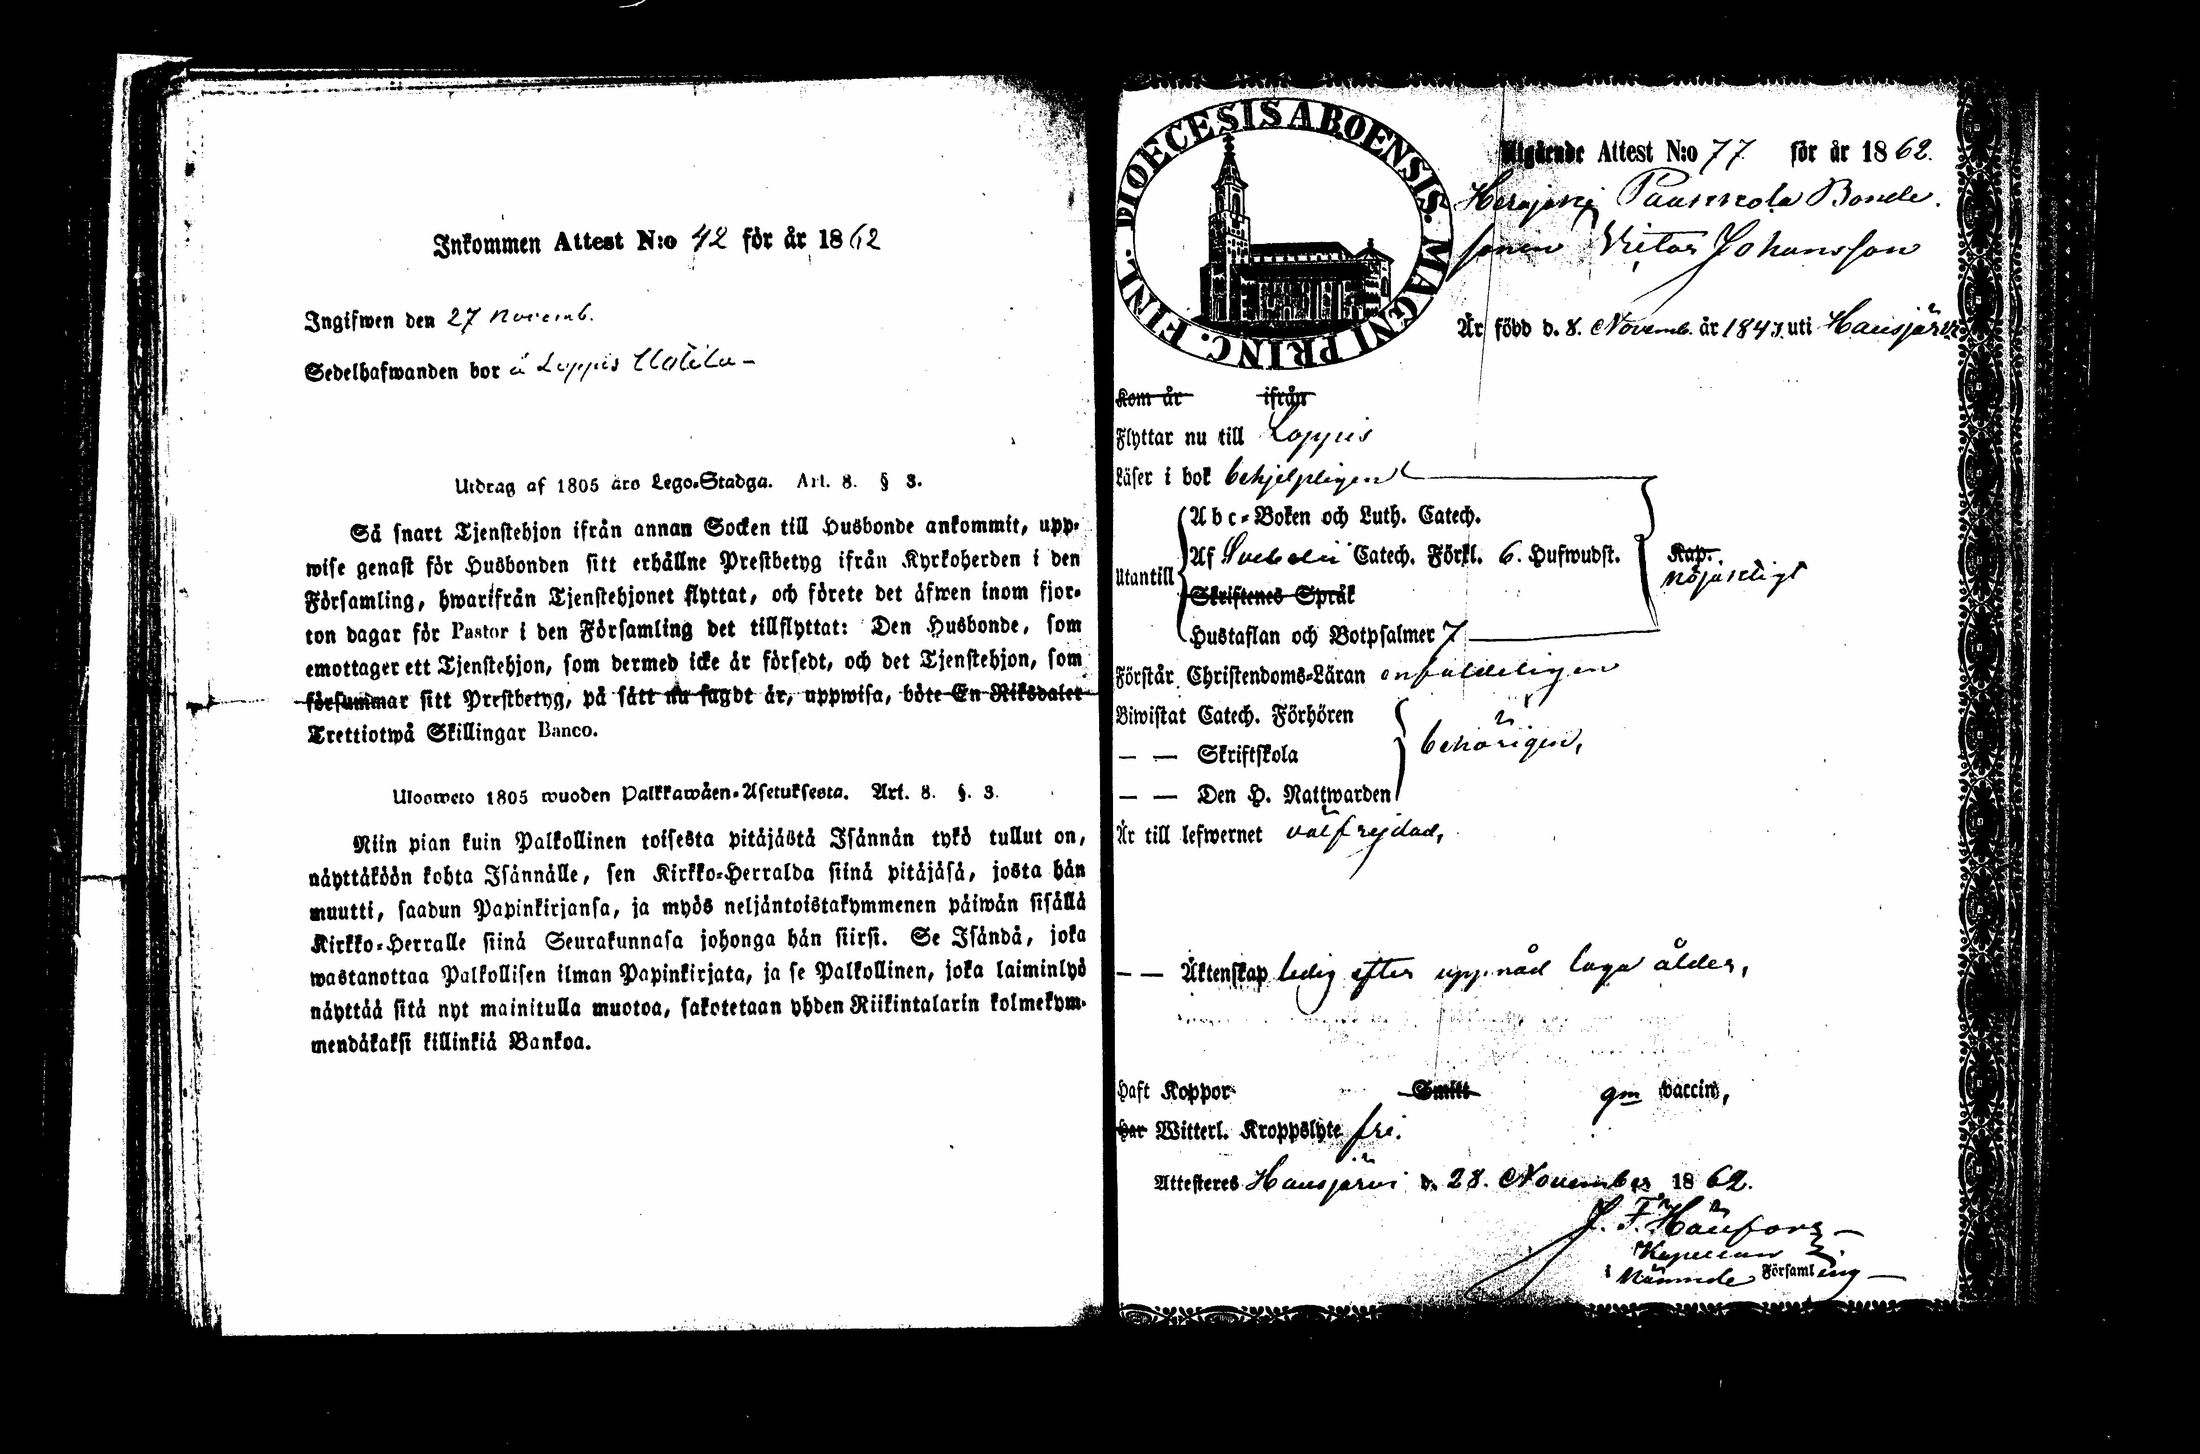 Inkommen Attest N:o 42 för år 1862
Ingifwen den 27 novemb.
Sedelhafwanden bor å Loppis
Utdrag af 1805 års Lego-Stadga. Art. 8. § 3.
Så snart Tjenstehjon ifrån annan Socken till Husbonde ankommit, upp-
wise genast för Husbonden sitt erhållne Prestbetyg ifrån Kyrkoherden i den
Församling, hwarifrån Tjenstehjonet flyttat, och förete det äfwen inom fjor-
ton dagar för Pastor i den Församling det tillflyttat: Den Husbonde, som
emottager ett Tjenstehjon, som dermed icke är försedt, och det Tjenstehjon, som
försummar sitt Prestbetyg, på sätt nu sagdt är, uppwisa, böte En Riksdaler
Trettiotwå Skillingar Banco.
Ulosweto 1805 wuoden Palkkawäen-Asetuksesta. Art. 8. §. 3.
Niin pian kuin Palkollinen toisesta pitäjästä Isännän tykö tullut on,
näyttäköön kohta Isännälle, sen Kirkko-Herralda siinä pitäjäsä, josta hän
muutti, saadun Papinkirjansa, ja myös neljäntoistakymmenen päiwän sisällä
Kirkko-Herralle siinä Seurakunnasa johonga hän siirsi. Se Isändä, joka
wastanottaa Palkollisen ilman Papinkirjata, ja se Palkollinen, joka laiminlyö
näyttää sitä nyt mainitulla muotoa, sakotetaan yhden Riikintalarin kolmekym-
mendäkaksi killinkiä Bankoa.
DIOECESIS ABOENSIS. MAGNI PRINC. FINL.
Utgående Attest N:o 77 för år 1862.
Herajoki Paunnola Bonde.
sonen Victor Johansson
Är född d. 8. Novemb. år 1843. uti Hausjärvi
Kom år ifrån
Flyttar nu till Loppis
Läser i bok behjelpligen
Utantill
Abc-Boken och Luth. Catech.
Af Svebelii Catech. Förkl. 6. Hufwudst.
Kap.
nöjaktigt
Skriftenes Språk
Hustaflan och Botpsalmer 7
Förstår Christendoms-Läran enfaldeligen
Biwistat Catech. Förhören
— — Skriftskola
behörigen,
— — Den H. Nattwarden
Är till lefwernet välfrejdad,
— — Äktenskap ledig efter uppnåd laga ålder,
Haft Koppor Smitt gm vaccin,
har Witterl. Kroppslyte fri.
Attesteres Hausjärvi d. 28. November 1862.
J. F. Häufors
Kapellan
i nämnde Församling